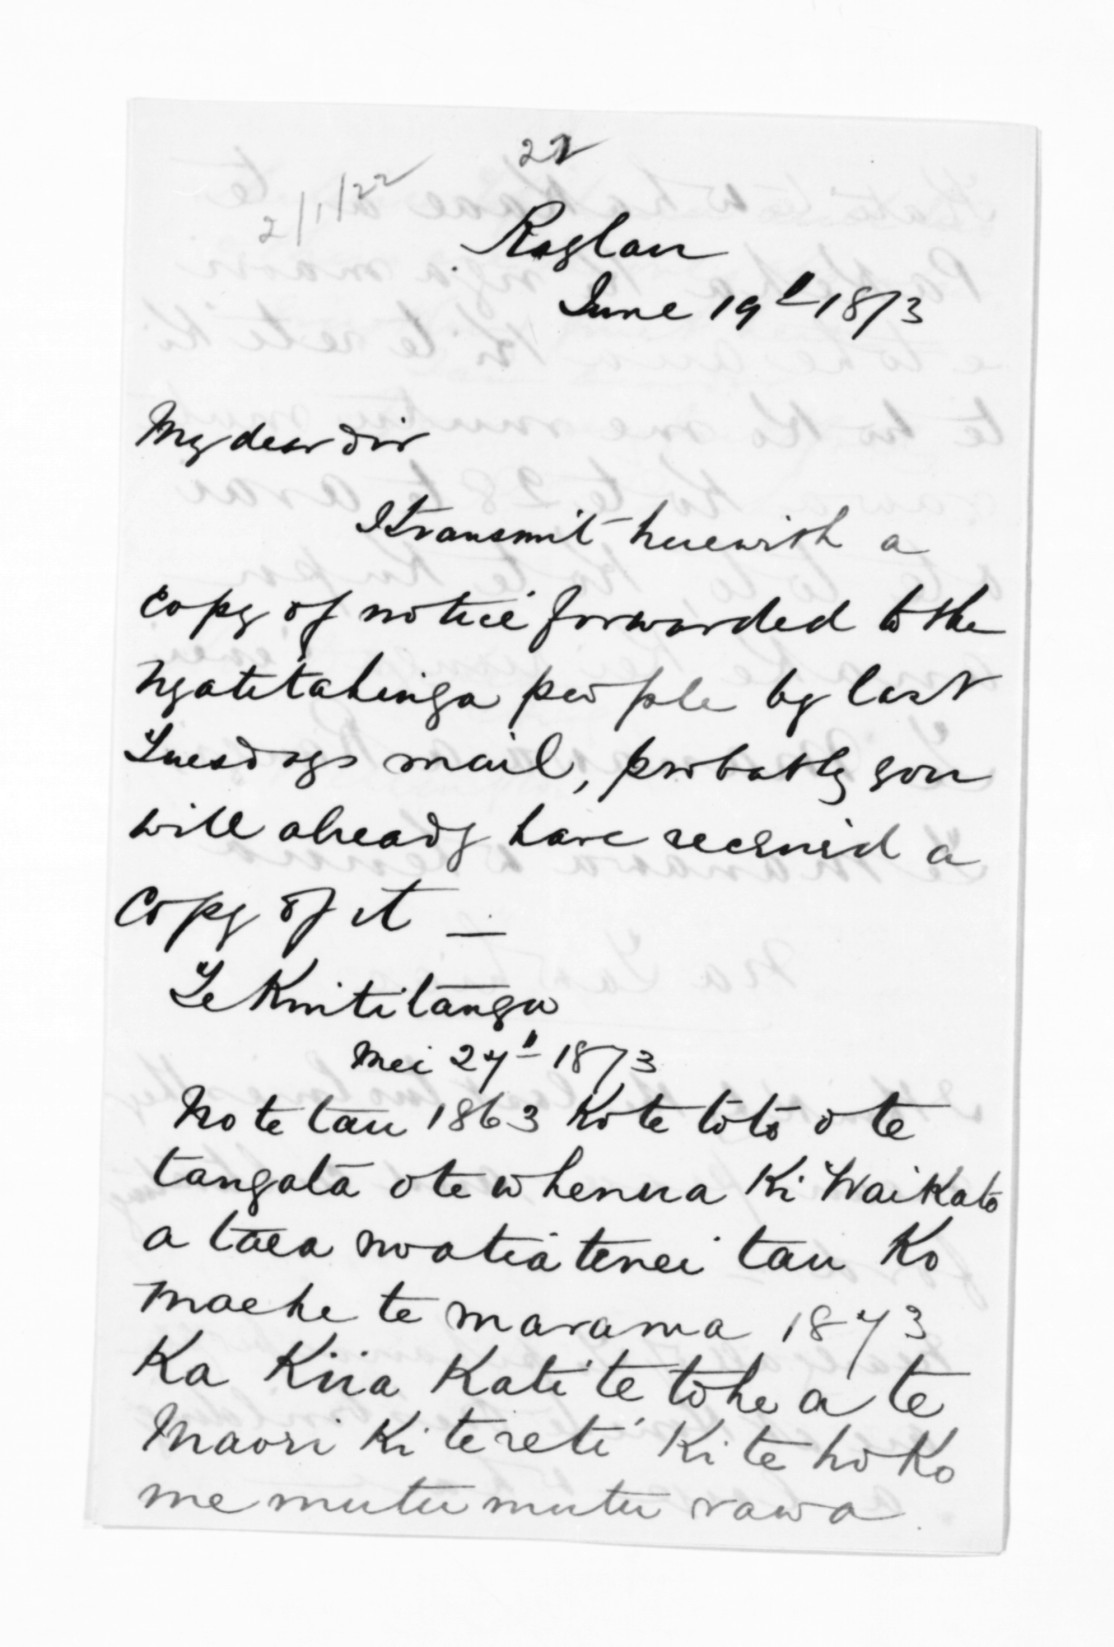 22
2/1/22
Raglan
June 19th 1873
My dear Sir
I transmit herewith a
copy of notice forwarded to the
Ngatitahinga people by last
Tuesdays mail, probably you
will already have received a
copy of it —
Te Kuititanga
Mei 27th 1873
No te tau 1863 Ko te toto o te
tangata o te whenua Ki Waikato
a taea noatia tenei tau Ko
Maehe te marama 1873
Ka Kiia Kati te tohe a te
Maori Ki te reti Ki te hoko
me mutu mutu rawa